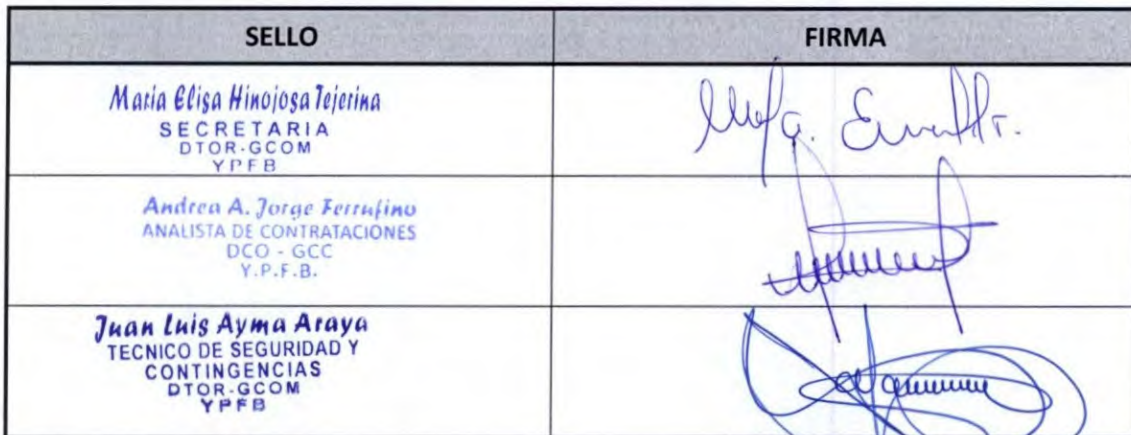 SELLO FIRMA
Maria Elisa Hinojosa Tejerina
SECRETARIA
DTOR-GCOM
YPFB
Andrea A. Jorge Ferrufino
ANALISTA DE CONTRATACIONES
DCO - GCC
Y.P.F.B.
Juan Luis Ayma Araya
TECNICO DE SEGURIDAD Y
CONTINGENCIAS
DTOR-GCOM
YPFB